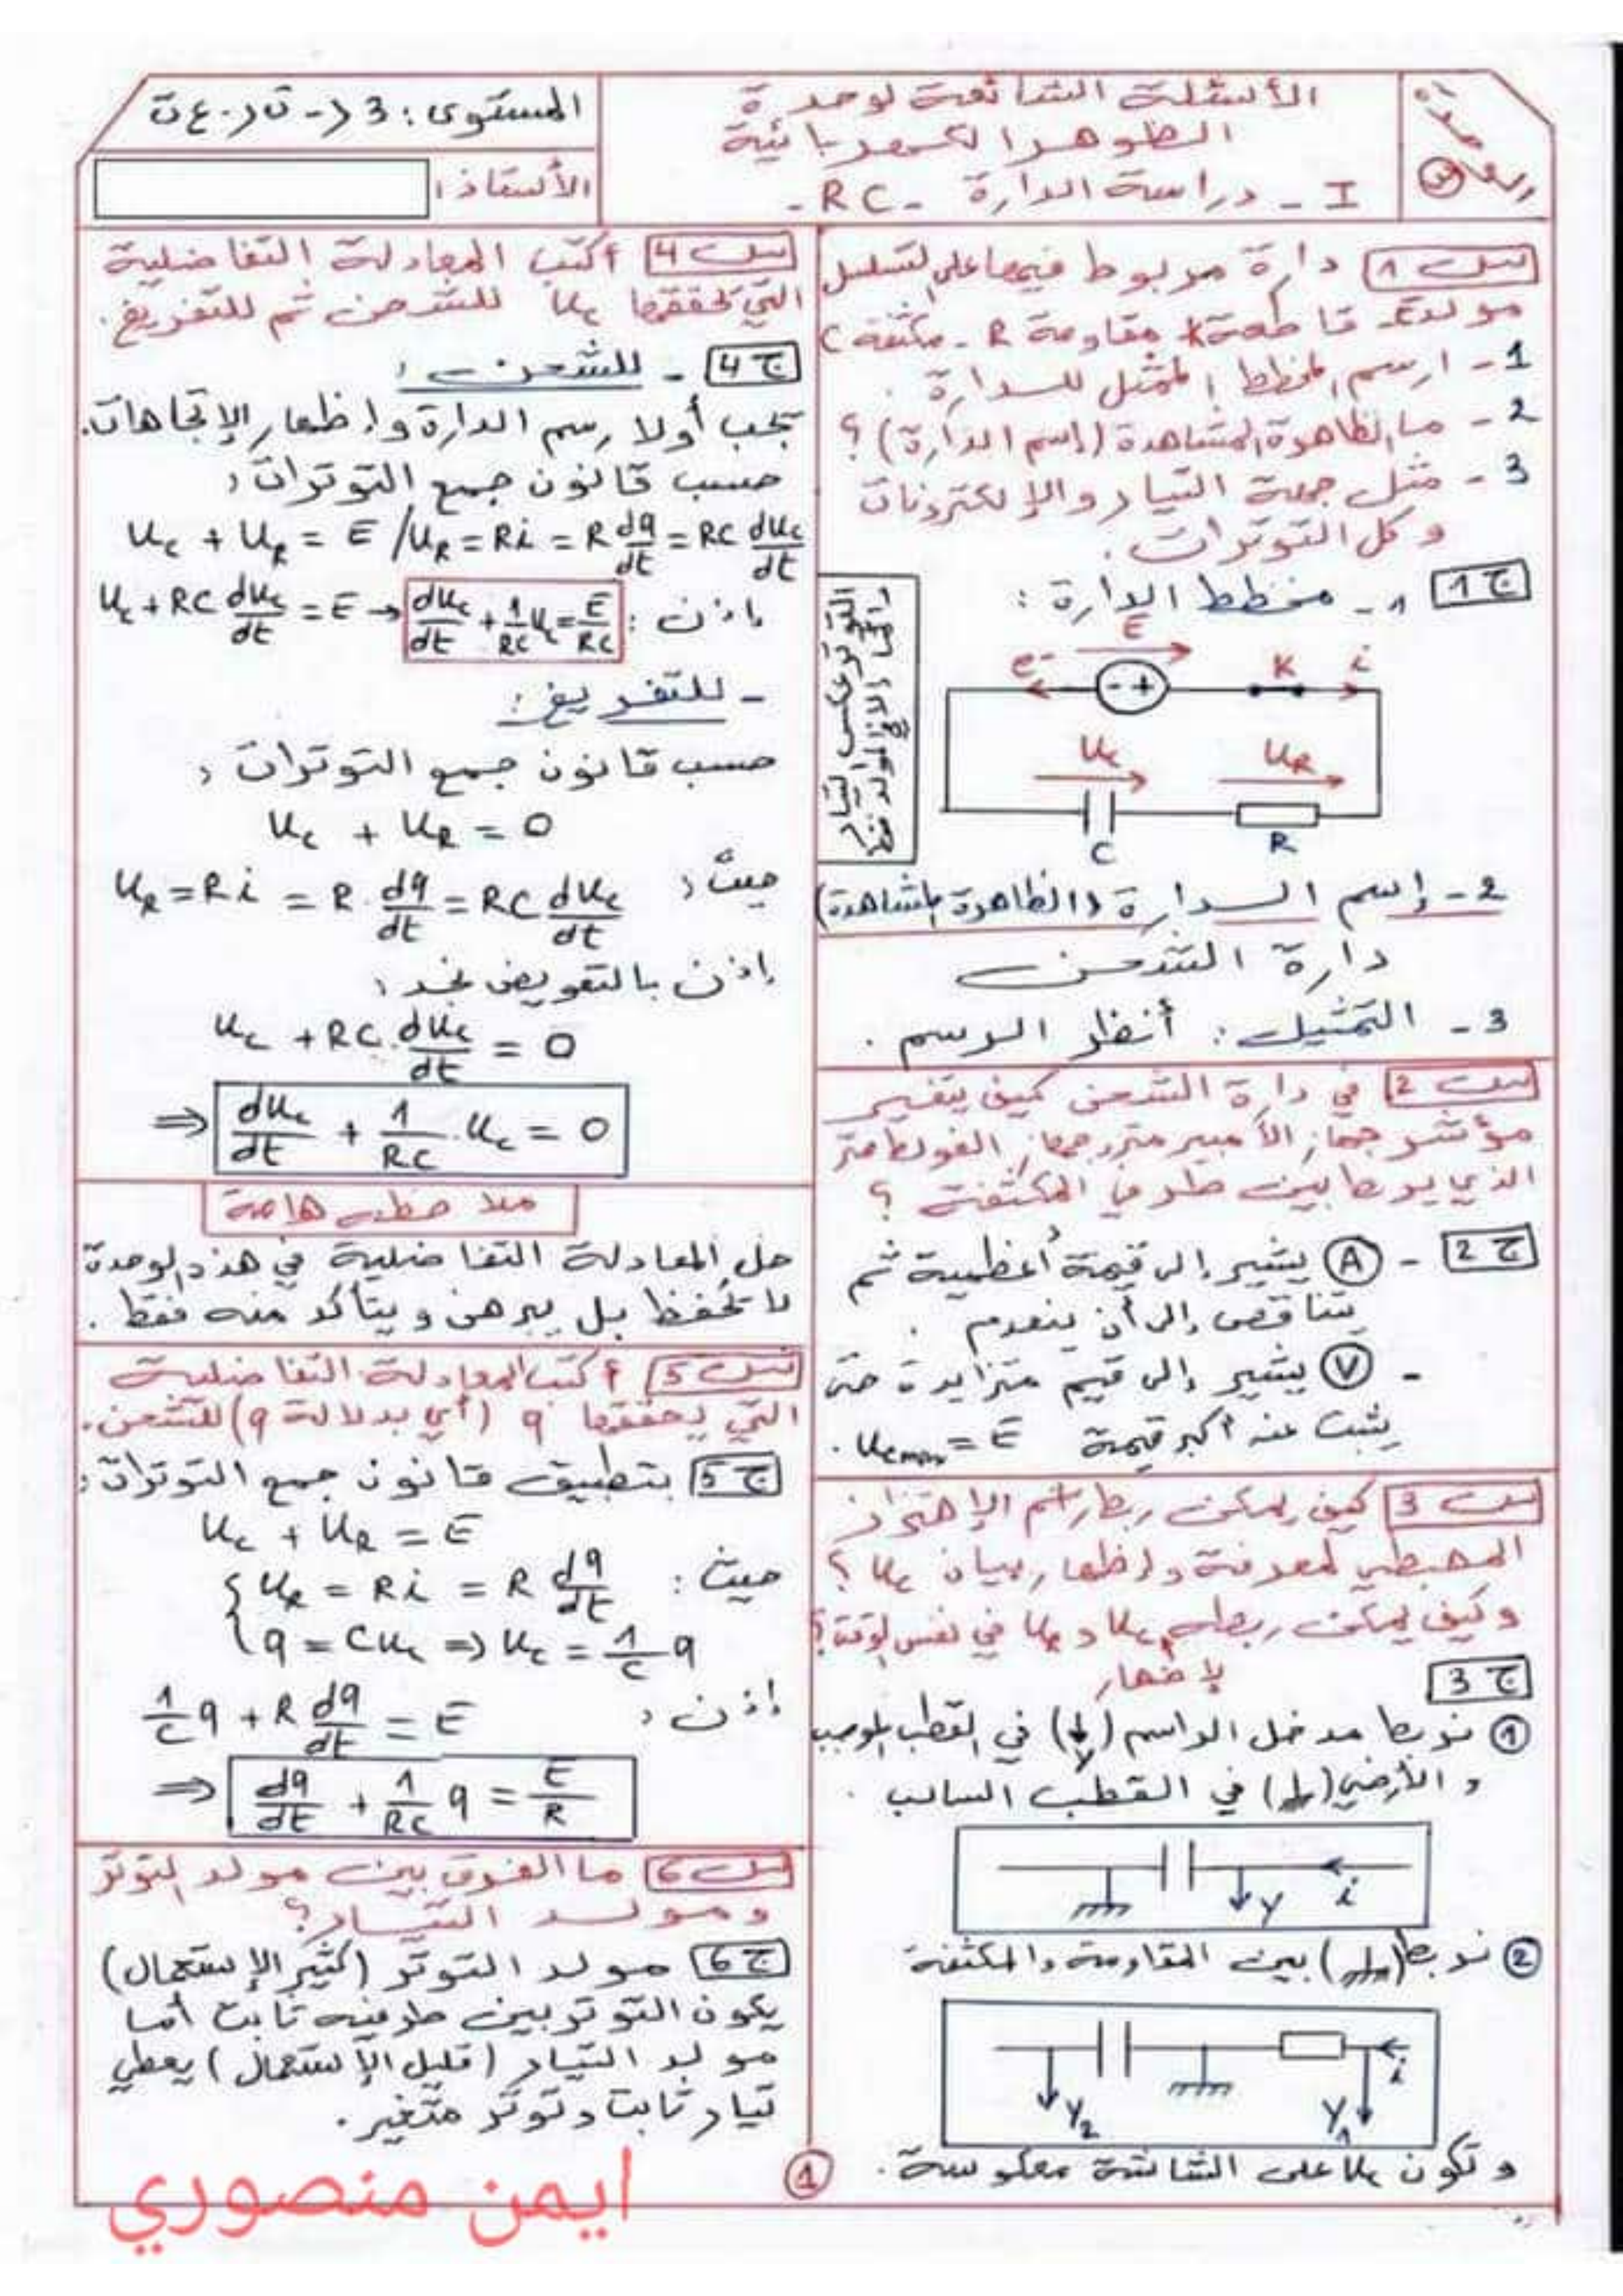 الأسئلة الشائعة لوحدة
الظواهر الكهربائية
I - دراسة الدارة - RC -
المستوى: 3 ر - ت ر. ع ت
الأستاذ:
3
س 1 دارة مربوط فيها على التسلسل
مولد E - قاطعة K مقاومة R - مكثفة C
1 - ارسم المخطط الممثل للدارة.
2 - ما الظاهرة المشاهدة (إسم الدارة)؟
3 - مثل جهة التيار والإلكترونات
وكل التوترات.
ج 1 1 - مخطط الدارة:
E
e- - + K i
Uc UR
C R
التوتر عكس التيار
دائما إلا في المولد فقط
2 - إسم الدارة (الظاهرة المشاهدة)
دارة الشحن
3 - التمثيل: أنظر الرسم.
س 2 في دارة الشحن كيف يتغير
مؤشر جهاز الأمبير متر وجهاز الفولط متر
الذي يربط بين طرفي المكثفة؟
ج 2 - A يشير إلى قيمة أعظمية ثم
يتناقص إلى أن ينعدم.
- V يشير إلى قيم متزايدة حتى
يثبت عند أكبر قيمة Ucmax = E.
س 3 كيف يمكن ربط راسم الإهتزاز
المهبطي لمعرفة وإظهار بيان Uc؟
وكيف يمكن ربطه Uc و UR في نفس الوقت؟
لإظهار
ج 3
1 نربط مدخل الراسم (Y) في القطب الموجب
والأرضي ( ) في القطب السالب.
Y i
2 نربط ( ) بين المقاومة والمكثفة
i
Y2 Y1
وتكون Uc على الشاشة معكوسة.
س 4 أكتب المعادلة التفاضلية
التي تحققها Uc للشحن ثم للتفريغ.
ج 4 - للشحن:
يجب أولا رسم الدارة وإظهار الإتجاهات.
حسب قانون جمع التوترات:
Uc + UR = E / UR = Ri = R dq/dt = RC dUc/dt
إذن: Uc + RC dUc/dt = E → dUc/dt + 1/RC Uc = E/RC
- للتفريغ:
حسب قانون جمع التوترات:
Uc + UR = 0
حيث: UR = Ri = R. dq/dt = RC dUc/dt
إذن بالتعويض نجد:
Uc + RC. dUc/dt = 0
⇒ dUc/dt + 1/RC . Uc = 0
ملاحظة هامة
حل المعادلة التفاضلية في هذه الوحدة
لا تحفظ بل يبرهن ويتأكد منه فقط.
س 5 أكتب المعادلة التفاضلية
التي يحققها q (أي بدلالة q) للشحن.
ج 5 بتطبيق قانون جمع التوترات:
Uc + UR = E
حيث: { UR = Ri = R dq/dt
q = CUc ⇒ Uc = 1/C q
إذن: 1/C q + R dq/dt = E
⇒ dq/dt + 1/RC q = E/R
س 6 ما الفرق بين مولد التوتر
ومولد التيار؟
ج 6 مولد التوتر (كثير الإستعمال)
يكون التوتر بين طرفيه ثابت أما
مولد التيار (قليل الإستعمال) يعطي
تيار ثابت وتوتر متغير.
1
ايمن منصوري